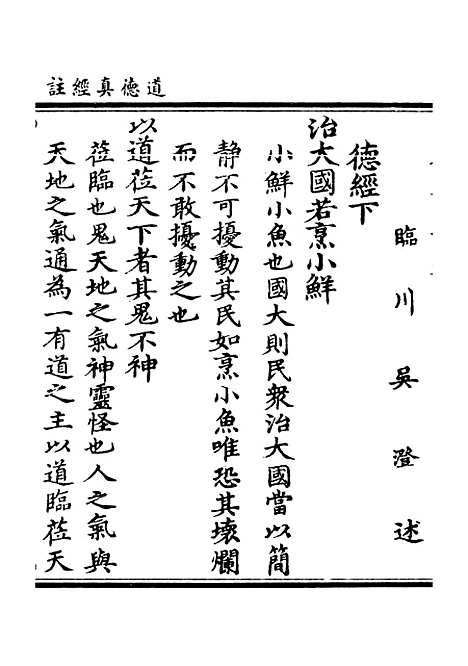 道德真經註
臨川吳澄述
德經下
治大國若烹小鮮
小鮮小魚也國大則民衆治大國當以簡
靜不可擾動其民如烹小魚唯恐其壞爛
而不敢擾動之也
以道莅天下者其鬼不神
莅臨也鬼天地之氣神靈怪也人之氣與
天地之氣通為一有道之主以道臨莅天